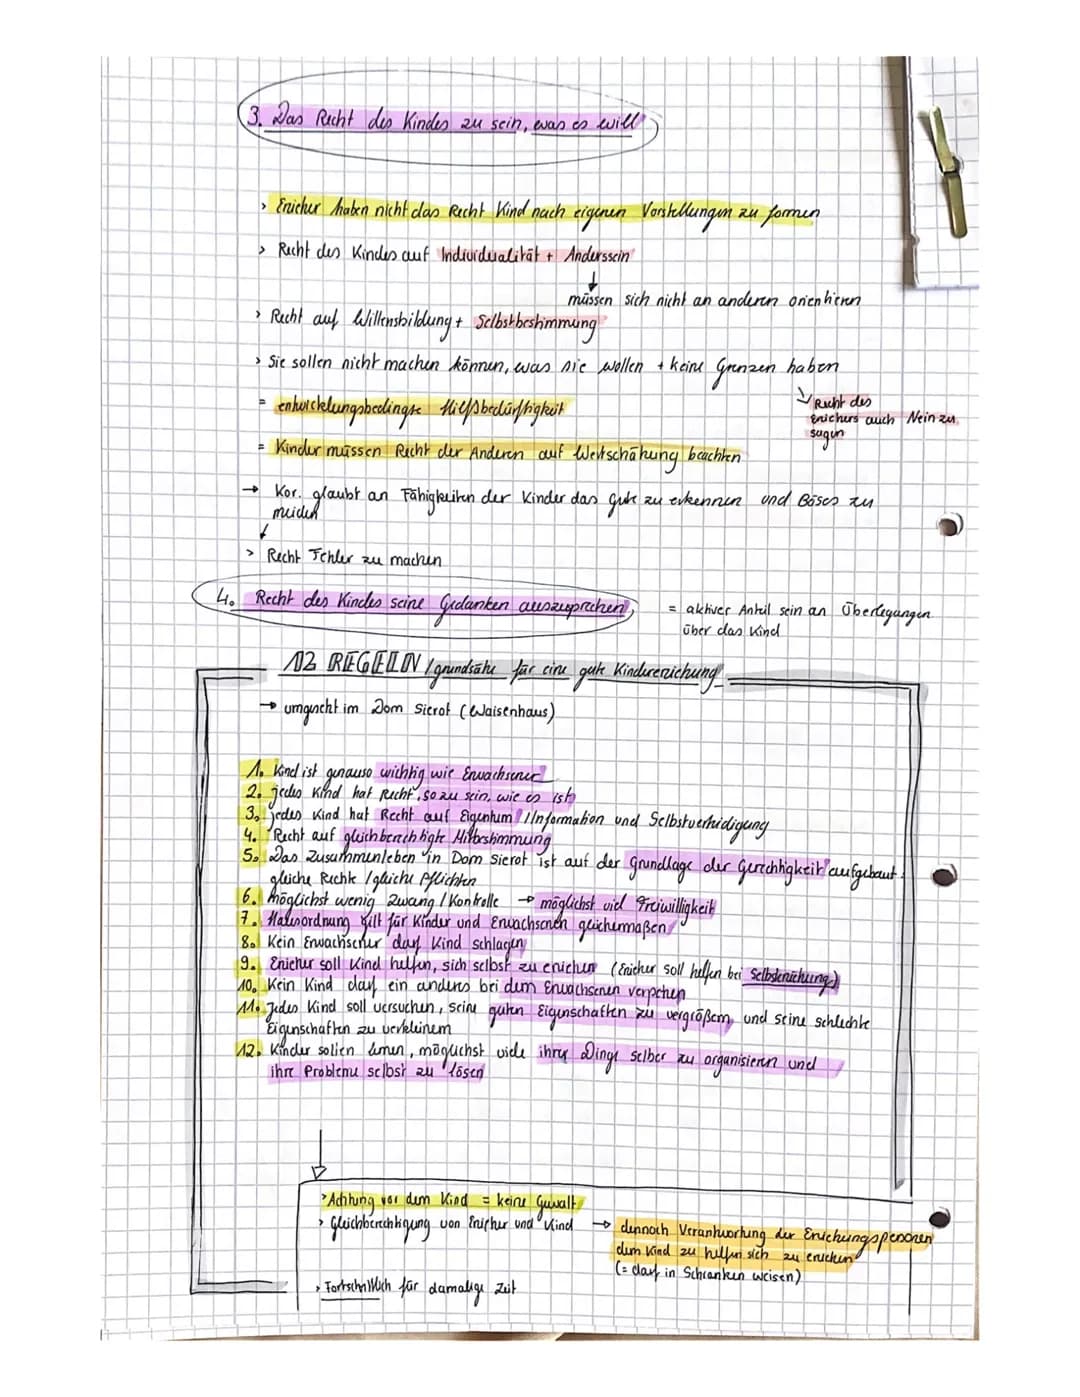 3. Das Recht des Kindes zu sein, was es will
> Erzieher haben nicht das Recht Kind nach eigenen Vorstellungen zu formen
> Recht des Kindes auf Individualität + Anderssein
↓
müssen sich nicht an anderen orientieren
> Recht auf Willensbildung + Selbstbestimmung
> Sie sollen nicht machen können, was sie wollen + keine Grenzen haben
↘ Recht des
Erziehers auch Nein zu
sagen
= entwicklungsbedingte Hilfsbedürftigkeit
= Kinder müssen Recht der Anderen auf Wertschätzung beachten
→ Kor. glaubt an Fähigkeiten der Kinder das gute zu erkennen und Böses zu
meiden
↓
> Recht Fehler zu machen
4. Recht des Kindes seine Gedanken auszusprechen
= aktiver Anteil sein an Überlegungen
über das Kind
12 REGELN / grundsätze für eine gute Kindererziehung
→ umgesetzt im Dom Sierot (Waisenhaus)
1. Kind ist genauso wichtig wie Erwachsener
2. jedes Kind hat Recht, so zu sein, wie es ist
3. jedes Kind hat Recht auf Eigentum / Information und Selbstverteidigung
4. Recht auf gleichberechtigte Mitbestimmung
5. Das Zusammenleben in Dom Sierot ist auf der Grundlage der Gerechtigkeit aufgebaut
gleiche Rechte / gleiche Pflichten
6. möglichst wenig Zwang / Kontrolle → möglichst viel Freiwilligkeit
7. Hausordnung gilt für Kinder und Erwachsenen gleichermaßen
8. Kein Erwachsener darf Kind schlagen
9. Erzieher soll Kind helfen, sich selbst zu erziehen (Erzieher soll helfen bei Selbsterziehung)
10. Kein Kind darf ein anderes bei dem Erwachsenen verpetzen
11. Jedes Kind soll versuchen, seine guten Eigenschaften zu vergrößern, und seine schlechte
Eigenschaften zu verkleinern
12. Kinder sollen lernen, möglichst viele ihrer Dinge selber zu organisieren und
ihre Probleme selbst zu lösen
> Achtung vor dem Kind = keine Gewalt
> Gleichberechtigung von Erzieher und Kind
→ dennoch Verantwortung der Erziehungspersonen
dem Kind zu helfen sich zu erziehen
(= darf in Schranken weisen)
> Fortschrittlich für damalige Zeit